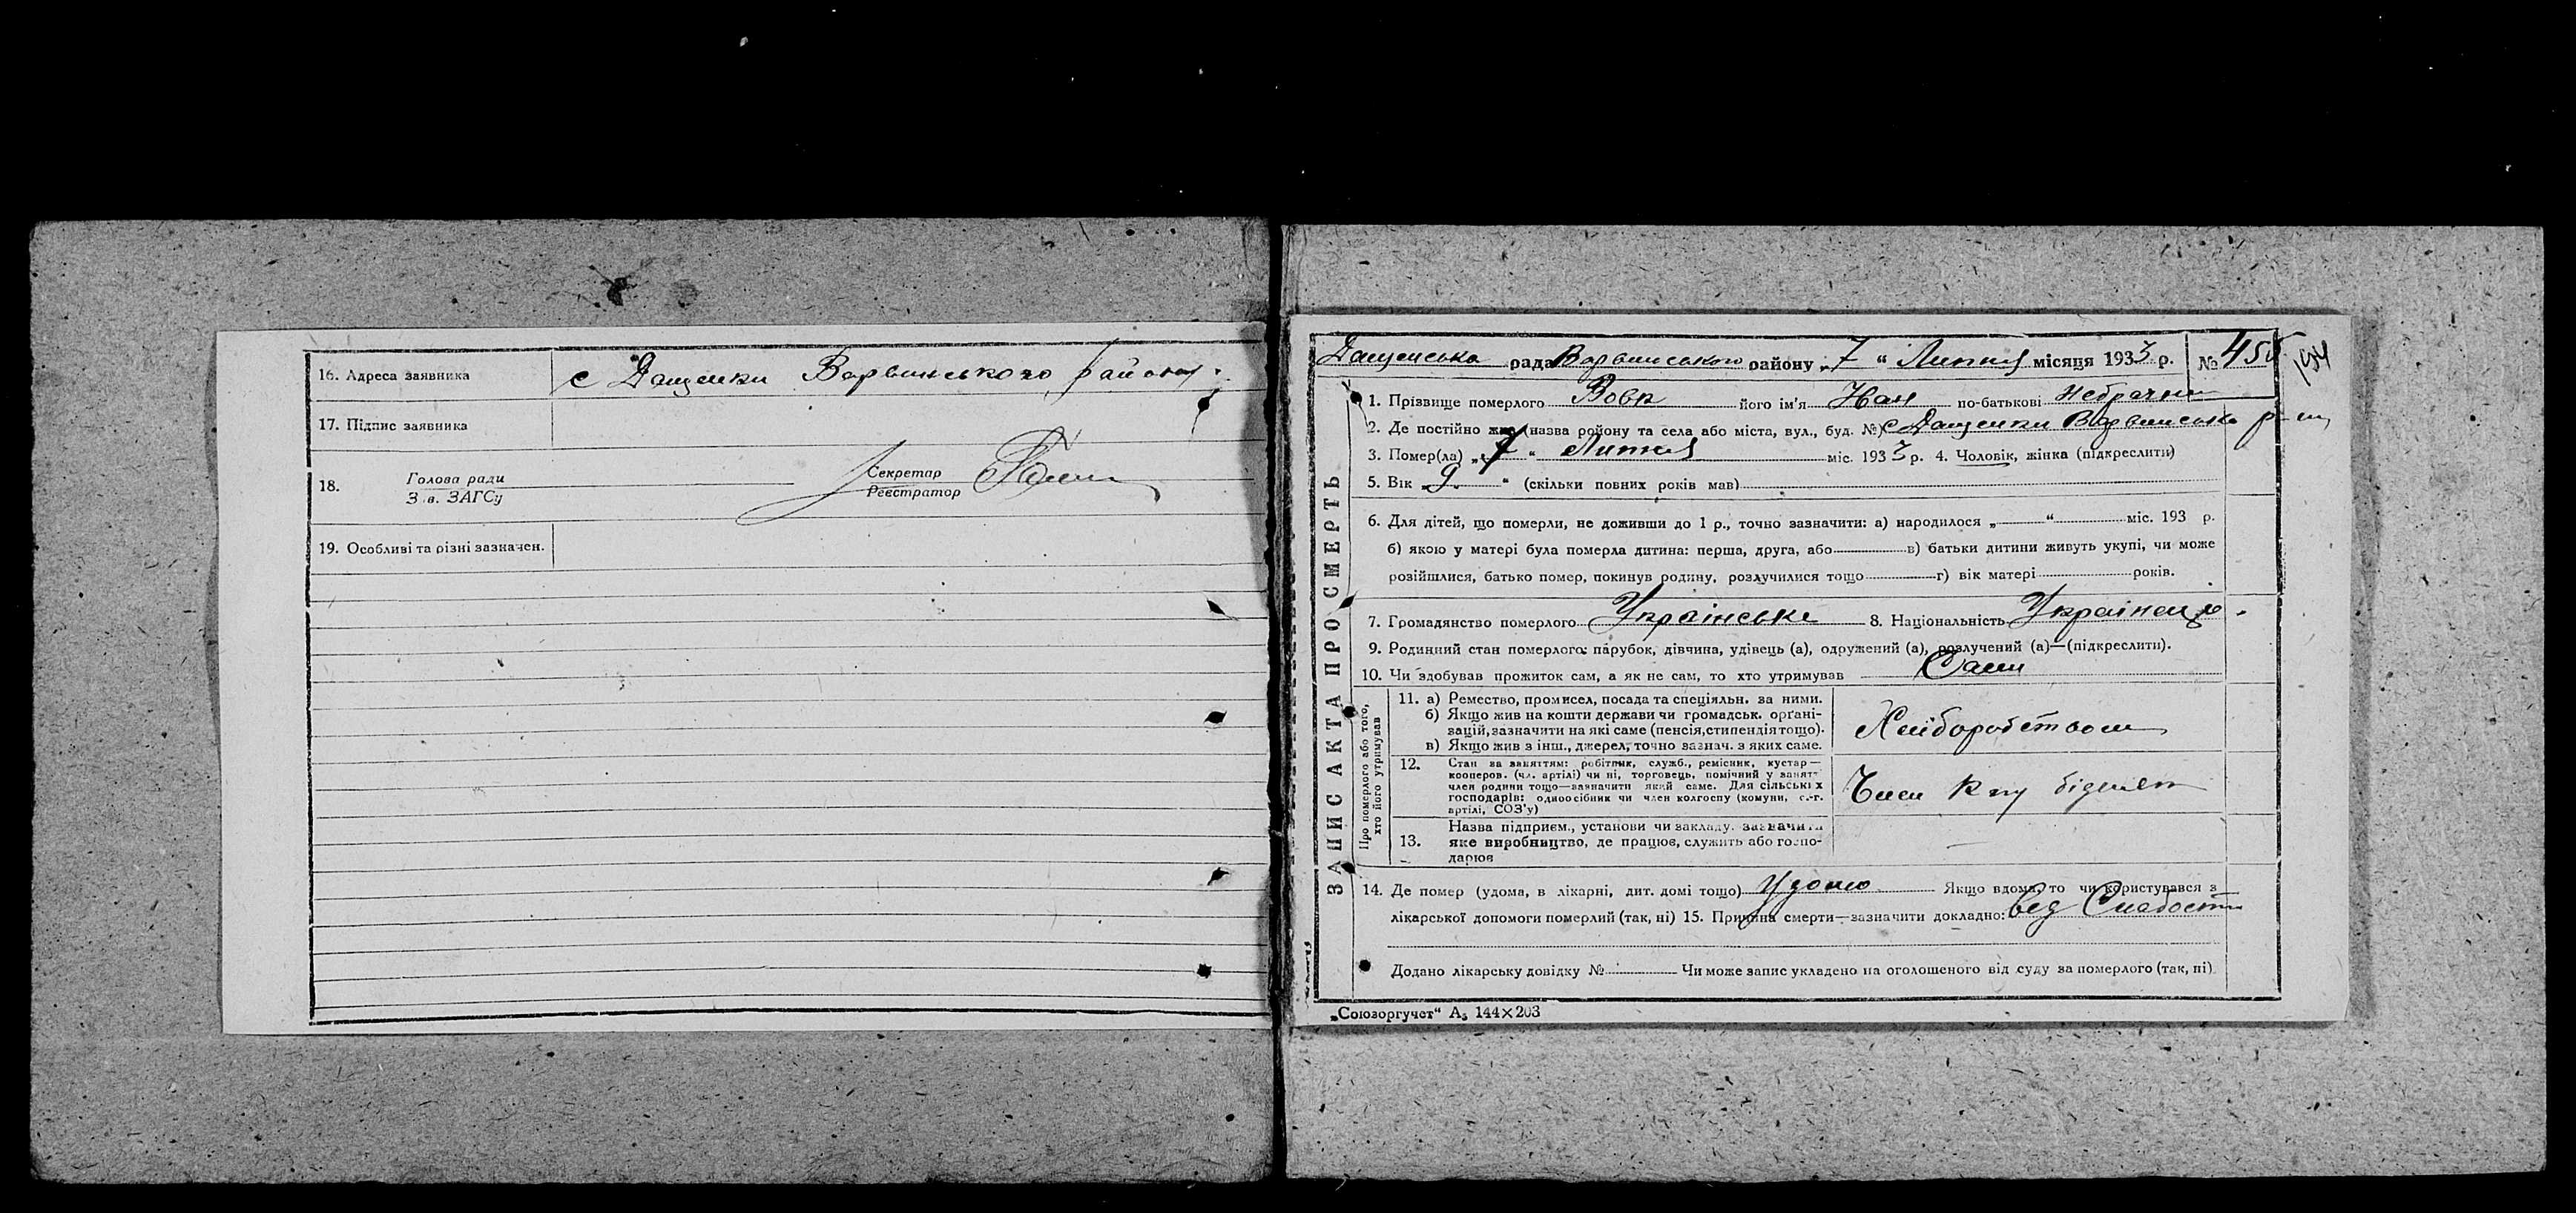 16. Адреса заявника с Дащенки Варвинського району.
17. Підпис заявника
18. Голова ради
Зав. ЗАГСу
Секретар
Реєстратор
19. Особливі та різні зазначен.
ЗАПИС АКТА ПРО СМЕРТЬ
Дащенська рада Варвинського району „7“ Липня місяця 1933 р. №
1. Прізвище померлого Вовк його ім'я Иван по-батькові
2. Де постійно жив (назва району та села або міста, вул., буд. №) с Дащенки Варвинськ р-ну
3. Помер(ла) „7“ Липня міс. 1933 р. 4. Чоловік, жінка (підкреслити)
5. Вік „9“ (скільки повних років мав)
6. Для дітей, що померли, не доживши до 1 р., точно зазначити: а) народилося „ “ міс. 193 р.
б) якою у матері була померла дитина: перша, друга, або в) батьки дитини живуть укупі, чи може
розійшлися, батько помер, покинув родину, розлучилися тощо г) вік матері років.
7. Громадянство померлого Українське 8. Національність
9. Родинний стан померлого: парубок, дівчина, удівець (а), одружений (а), розлучений (а)—(підкреслити).
10. Чи здобував прожиток сам, а як не сам, то хто утримував Сам
Про померлого або того,
хто його утримував
11. а) Ремество, промисел, посада та спеціяльн. за ними.
б) Якщо жив на кошти держави чи громадськ. орґані-
зацій, зазначити на які саме (пенсія, стипендія тощо).
в) Якщо жив з інш., джерел, точно зазнач. з яких саме.
Хліборобством
12. Стан за заняттям: робітник, служб., ремісник, кустар—
кооперов. (чл. артілі) чи ні, торговець, помічний у занят.
член родини тощо—зазначити який саме. Для сільських
господарів: одноосібник чи член колгоспу (комуни, с.-г.
артілі, СОЗ'у)
Член к-пу бідняк
Назва підприєм., установи чи закладу. зазначити
13. яке виробництво, де працює, служить або госпо-
дарює
14. Де помер (удома, в лікарні, дит. домі тощо) Удома Якщо вдома, то чи користувався з
лікарської допомоги померлий (так, ні) 15. Причина смерти—зазначити докладно: від Слабости
Додано лікарську довідку № Чи може запис укладено на оголошеного від суду за померлого (так, ні)
„Союзоргучет“ А₅ 144×203